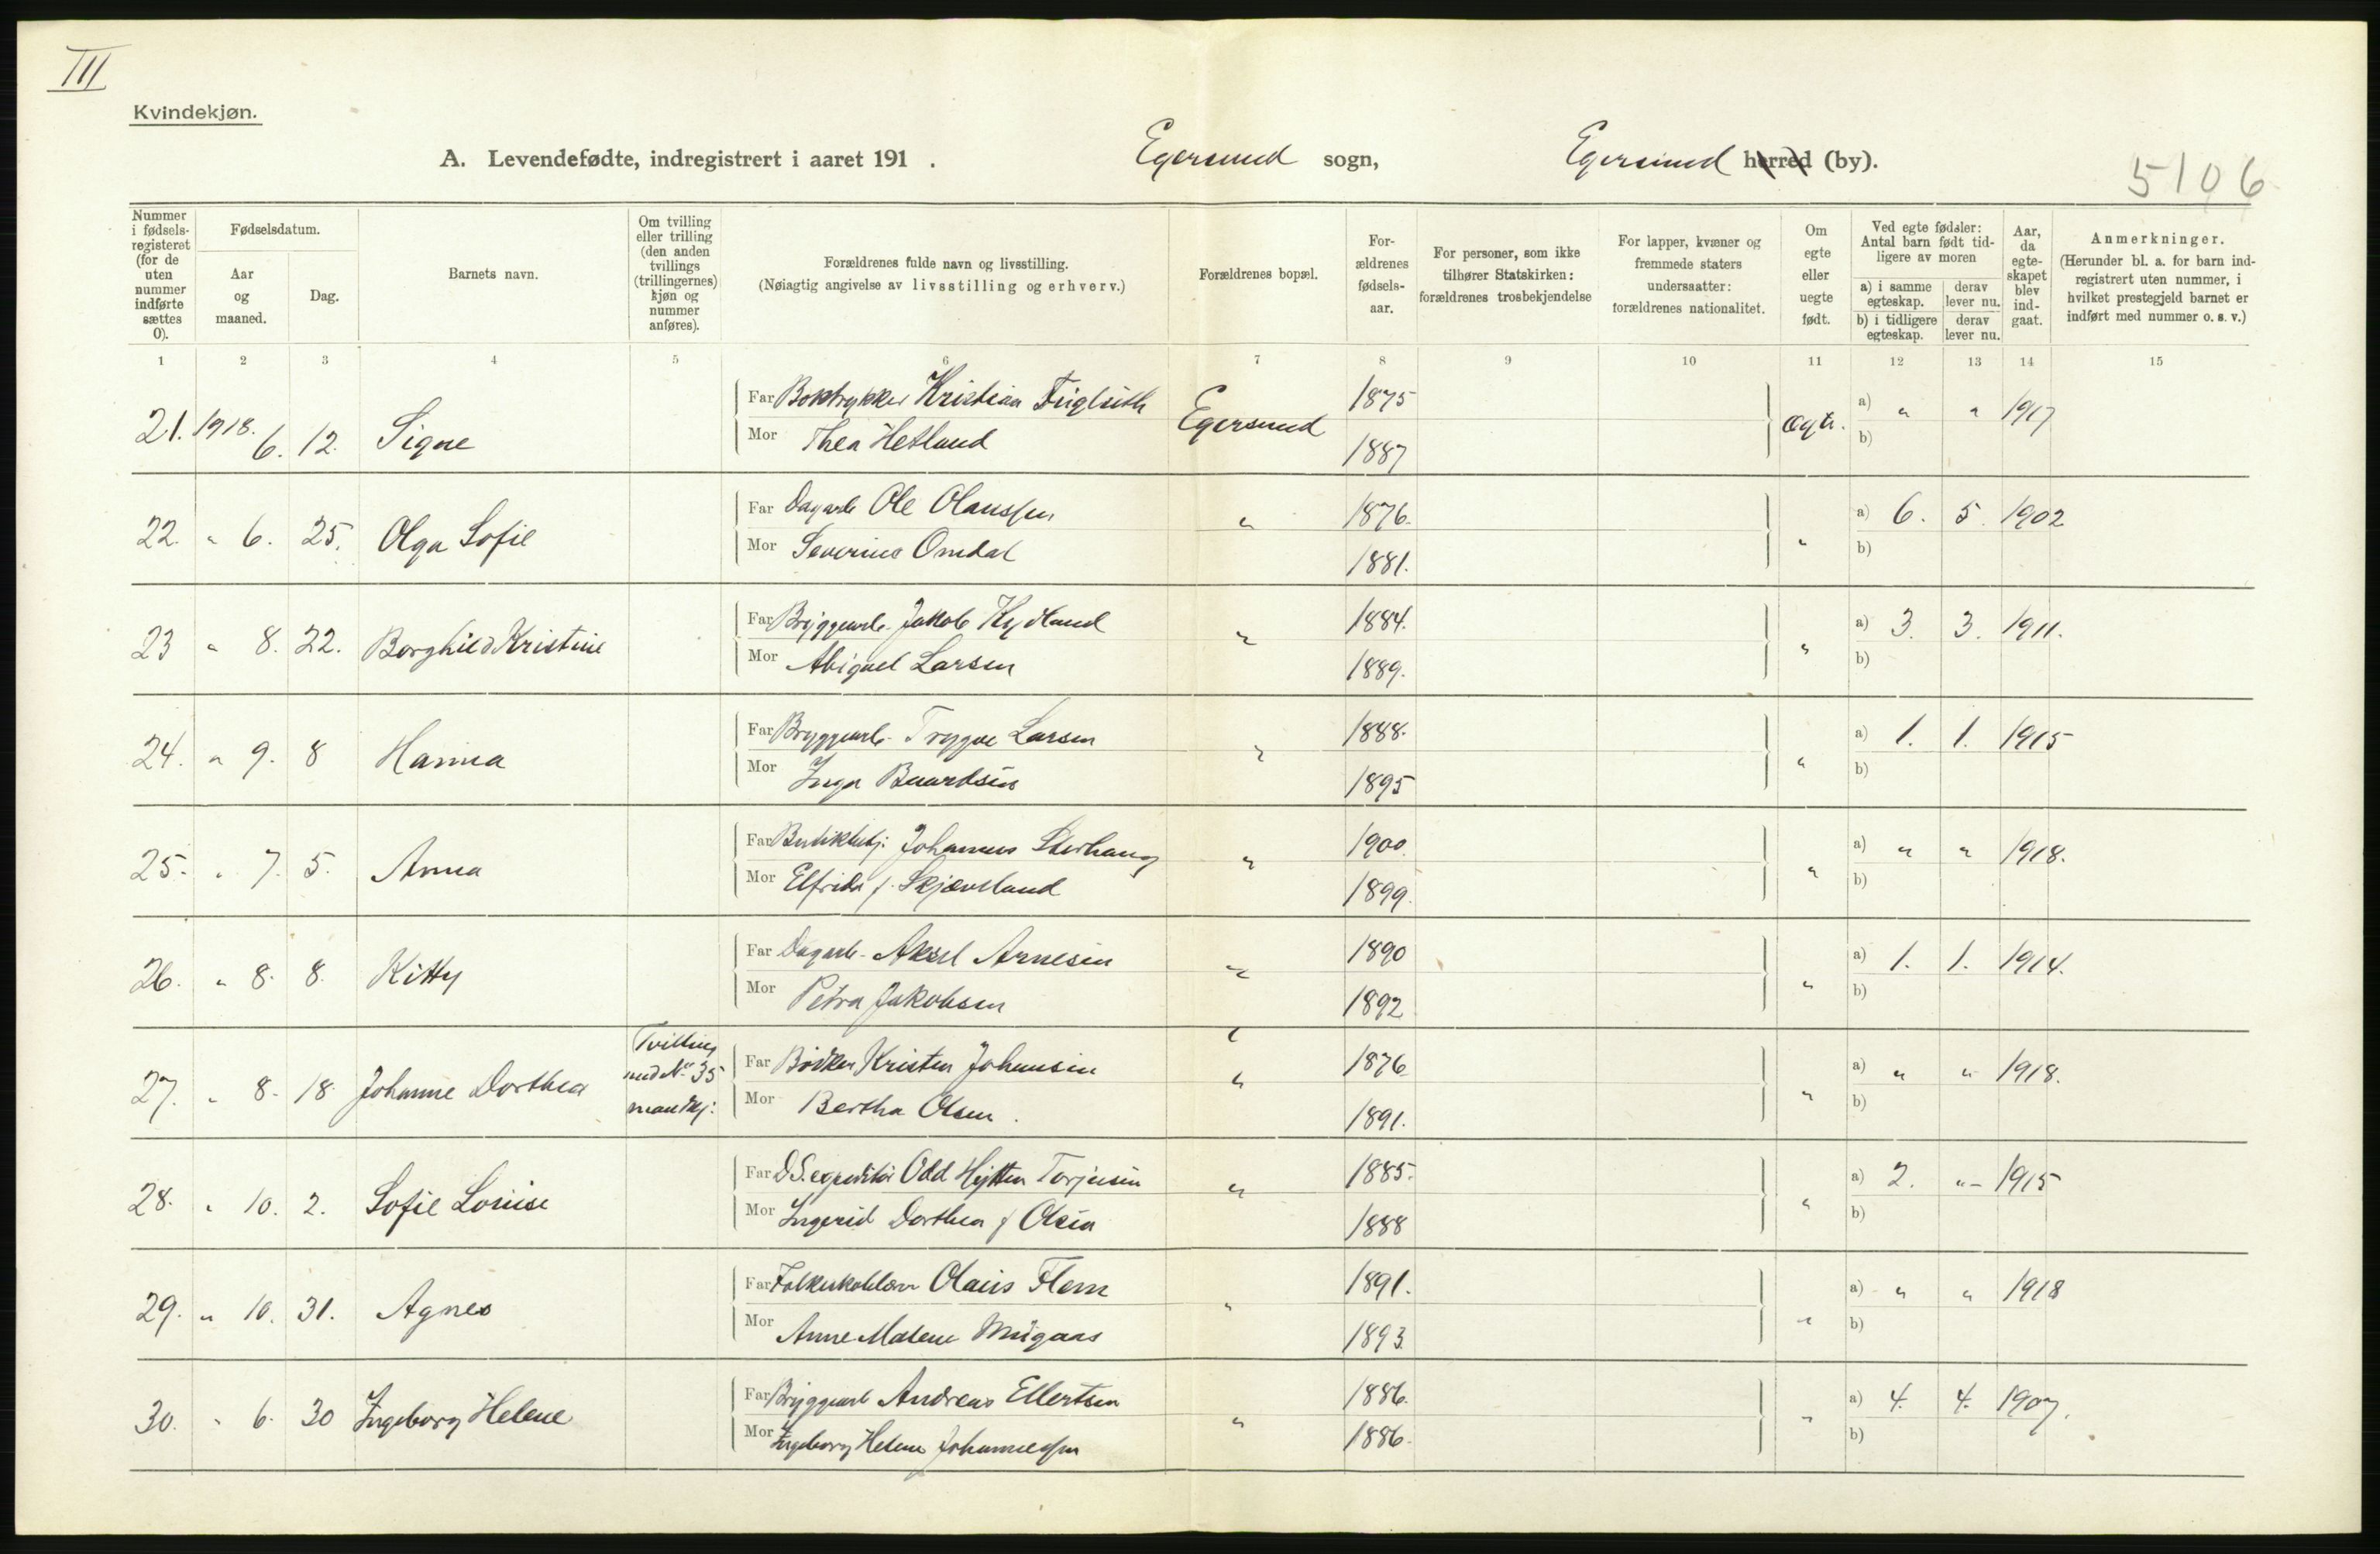 III
Kvindekjøn.
A. Levendefødte, indregistrert i aaret 191 . Egersund sogn, Egersund herred (by).
5106
Nummer i fødsels-registeret (for de uten nummer indførte sættes 0).
Fødselsdatum.
Aar og maaned.
Dag.
Barnets navn.
Om tvilling eller trilling (den anden tvillings (trillingernes) kjøn og nummer anføres).
Forældrenes fulde navn og livsstilling.
(Nøiagtig angivelse av livsstilling og erhverv.)
Forældrenes bopæl.
For-ældrenes fødsels-aar.
For personer, som ikke tilhører Statskirken: forældrenes trosbekjendelse
For lapper, kvæner og fremmede staters undersaatter: forældrenes nationalitet.
Om egte eller uegte født.
Ved egte fødsler: Antal barn født tid-ligere av moren
a) i samme egteskap. derav lever nu.
b) i tidligere egteskap. derav lever nu.
Aar, da egte-skapet blev ind-gaat.
Anmerkninger.
(Herunder bl. a. for barn ind-registrert uten nummer, i hvilket prestegjeld barnet er indført med nummer o. s. v.)
1 2 3 4 5 6 7 8 9 10 11 12 13 14 15
21. 1918. 6. 12. Signe Far Boktrykker Kristian Fuglseth Egersund 1875 Ægte. a) " " 1917
Mor Thea Hetland 1887 b)
22. " 6. 25. Olga Sofie Far Dagarb Ole Olaussen " 1876. " a) 6. 5. 1902
Mor Severine Omdal 1881. b)
23 " 8. 22. Borghild Kristine Far Bryggearb. Jakob Kydland " 1884. " a) 3. 3. 1911.
Mor Abigael Larsen 1889. b)
24. " 9. 8 Hanna Far Bryggearb. Trygve Larsen " 1888. " a) 1. 1. 1915
Mor Inga Baardsen 1895 b)
25. " 7. 5. Anna Far Butikbetj. Johannes " 1900. " a) " " 1918.
Mor Elfrida f. Skjæveland 1899. b)
26. " 8. 8. Kitty Far Dagarb. Aksel Arnesen " 1890 " a) 1. 1. 1914.
Mor Petra Jakobsen 1892 b)
27. " 8. 18. Johanne Dorthea Tvilling med No 35 mandkj: Far Bødker Kristen Johansen " 1876. " a) " " 1918.
Mor Bertha Olsen. 1891. b)
28. " 10. 2. Sofie Louise Far D.S.expeditør Odd Hytten Torjusen " 1885. " a) 2. "- 1915
Mor Ingerid Dorthea f Olsen 1888 b)
29. " 10. 31. Agnes Far Folkeskolelærer Olaus Flem " 1891. " a) " " 1918
Mor Anne Malene Mugaas 1893. b)
30. " 6. 30 Ingeborg Helene Far Bryggearb Andreas Ellertsen " 1886. " a) 4. 4. 1907.
Mor Ingeborg Helene Johannessen 1886. b)